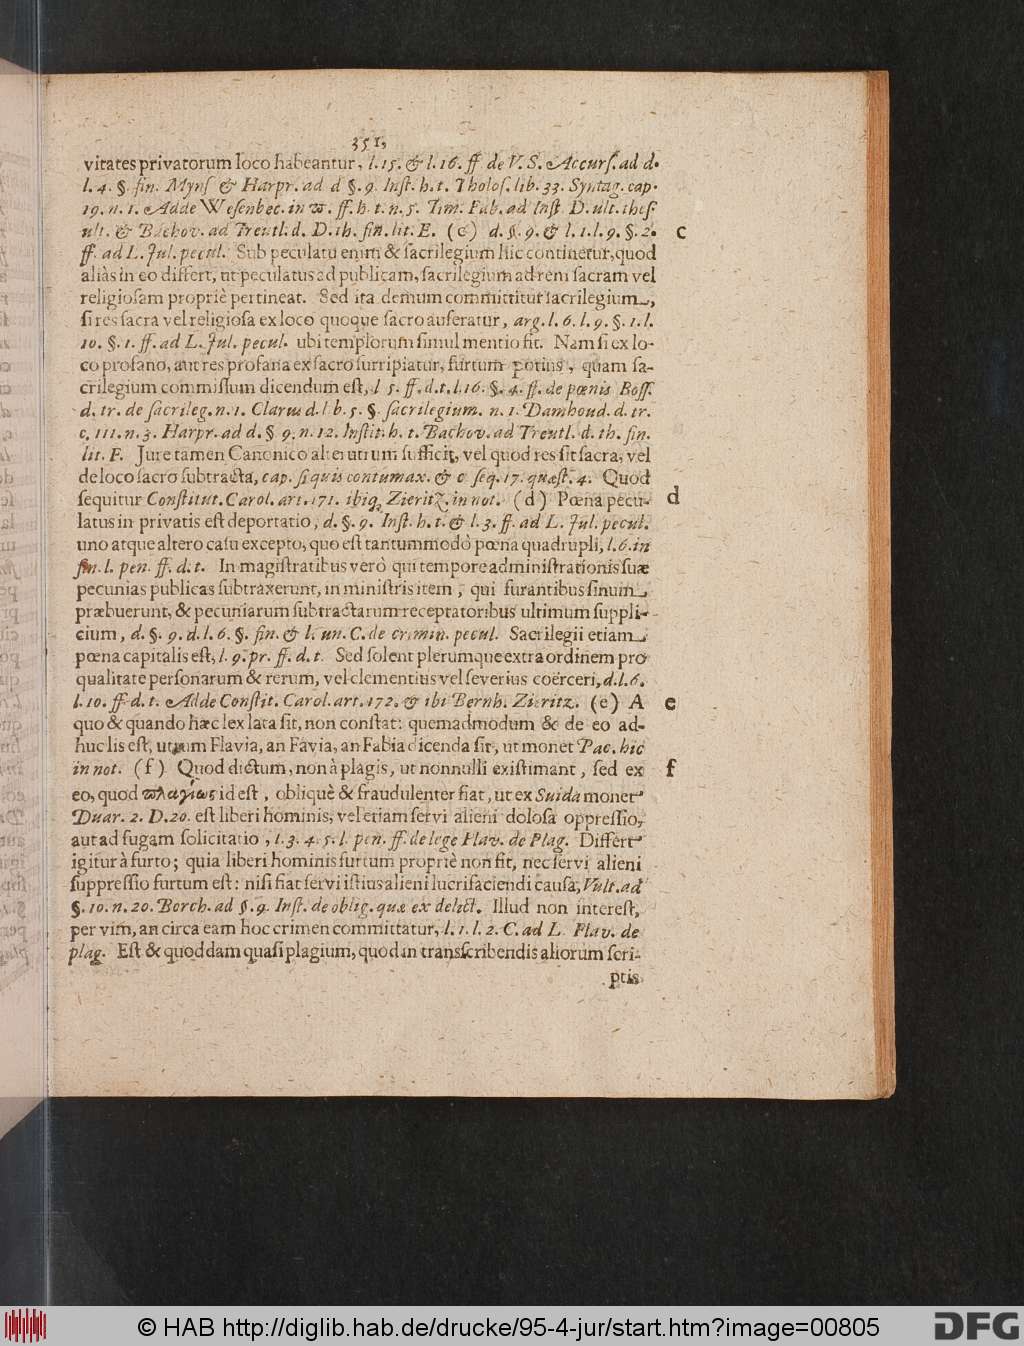 351,
vitates privatorum loco habeantur, l. 15. & l. 16. ff de V. S. Accurſ. ad d.
l. 4. §. fin. Mynſ & Harpr. ad d §. 9. Inſt. h. t. Tholoſ. lib. 33. Syntag. cap.
19. n. 1. Adde Weſenbec. in ϖ. ff. h t. n. 5. Tim. Fab. ad Inſt D. ult. theſ.
ult. & Bachov. ad Treutl. d. D. th. fin. lit. E. (c) d. §. 9. & l. 1. l. 9. §. 2. c
ff. ad L. Jul. pecul. Sub peculatu enim & ſacrilegium hic continetur, quod
aliàs in eo differt, ut peculatus ad publicam, ſacrilegium ad rem ſacram vel
religioſam propriè pertineat. Sed ita demum committitur ſacrilegium,
ſi res ſacra vel religioſa ex loco quoque ſacro auferatur, arg. l. 6. l. 9. §. 1. l.
10. §. 1. ff. ad L. Jul. pecul. ubi templorum ſimul mentio fit. Nam ſi ex lo-
co profano, aut res profana ex ſacro ſurripiatur, furtum potius, quam ſa-
crilegium commiſſum dicendum eſt, l 5. ff. d. t. l. 16. §. 4. ff. de pœnis Boſſ.
d. tr. de ſacrileg. n. 1. Clarus d. l b. 5. §. ſacrilegium. n. 1. Damhoud. d. tr.
c. 111. n. 3. Harpr. ad d. § 9. n. 12. Inſtit. h. t. Bachov. ad Treutl. d. th. fin.
lit. F. Jure tamen Canonico alterutrum ſufficit, vel quod res ſit ſacra, vel
de loco ſacro ſubtracta, cap. ſi quis contumax. & c ſeq. 17. quæſt. 4. Quod
ſequitur Conſtitut. Carol. art. 171. ibiq; Zieritz. in not. (d) Pœna pecu- d
latus in privatis eſt deportatio, d. §. 9. Inſt. h. t. & l. 3. ff. ad L. Jul. pecul.
uno atque altero caſu excepto, quo eſt tantummodò pœna quadrupli, l. 6. in
fin. l. pen. ff. d. t. In magiſtratibus verò qui tempore adminiſtrationis ſuæ
pecunias publicas ſubtraxerunt, in miniſtris item, qui furantibus ſinum
præbuerunt, & pecuniarum ſubtractarum receptatoribus ultimum ſuppli-
cium, d. §. 9. d. l. 6. §. fin. & l. un. C. de crimin. pecul. Sacrilegii etiam
pœna capitalis eſt, l. 9. pr. ff. d. t. Sed ſolent plerumque extra ordinem pro
qualitate perſonarum & rerum, vel clementius vel ſeverius coërceri, d. l. 6.
l. 10. ff. d. t. Adde Conſtit. Carol. art. 172. & ibi Bernh. Zieritz. (e) A e
quo & quando hæc lex lata ſit, non conſtat: quemadmodum & de eo ad-
huc lis eſt, utrum Flavia, an Favia, an Fabia dicenda ſit, ut monet Pac. hic
in not. (f) Quod dictum, non à plagis, ut nonnulli exiſtimant, ſed ex f
eo, quod ϖλαγίως id eſt, obliquè & fraudulenter fiat, ut ex Suida monet
Duar. 2. D. 20. eſt liberi hominis, vel etiam ſervi alieni doloſa oppreſſio,
aut ad fugam ſolicitatio, l. 3. 4. 5. l. pen. ff. de lege Flav. de Plag. Differt
igitur à furto; quia liberi hominis furtum propriè non fit, nec ſervi alieni
ſuppreſſio furtum eſt: niſi fiat ſervi iſtius alieni lucrifaciendi cauſa, Vult. ad
§. 10. n. 20. Borch. ad §. 9. Inſt. de oblig. quæ ex delict. Illud non intereſt,
per vim, an circa eam hoc crimen committatur, l. 1. l. 2. C. ad L Flav. de
plag. Eſt & quoddam quaſi plagium, quod in transſcribendis aliorum ſcri-
ptis
© HAB http://diglib.hab.de/drucke/95-4-jur/start.htm?image=00805
DFG